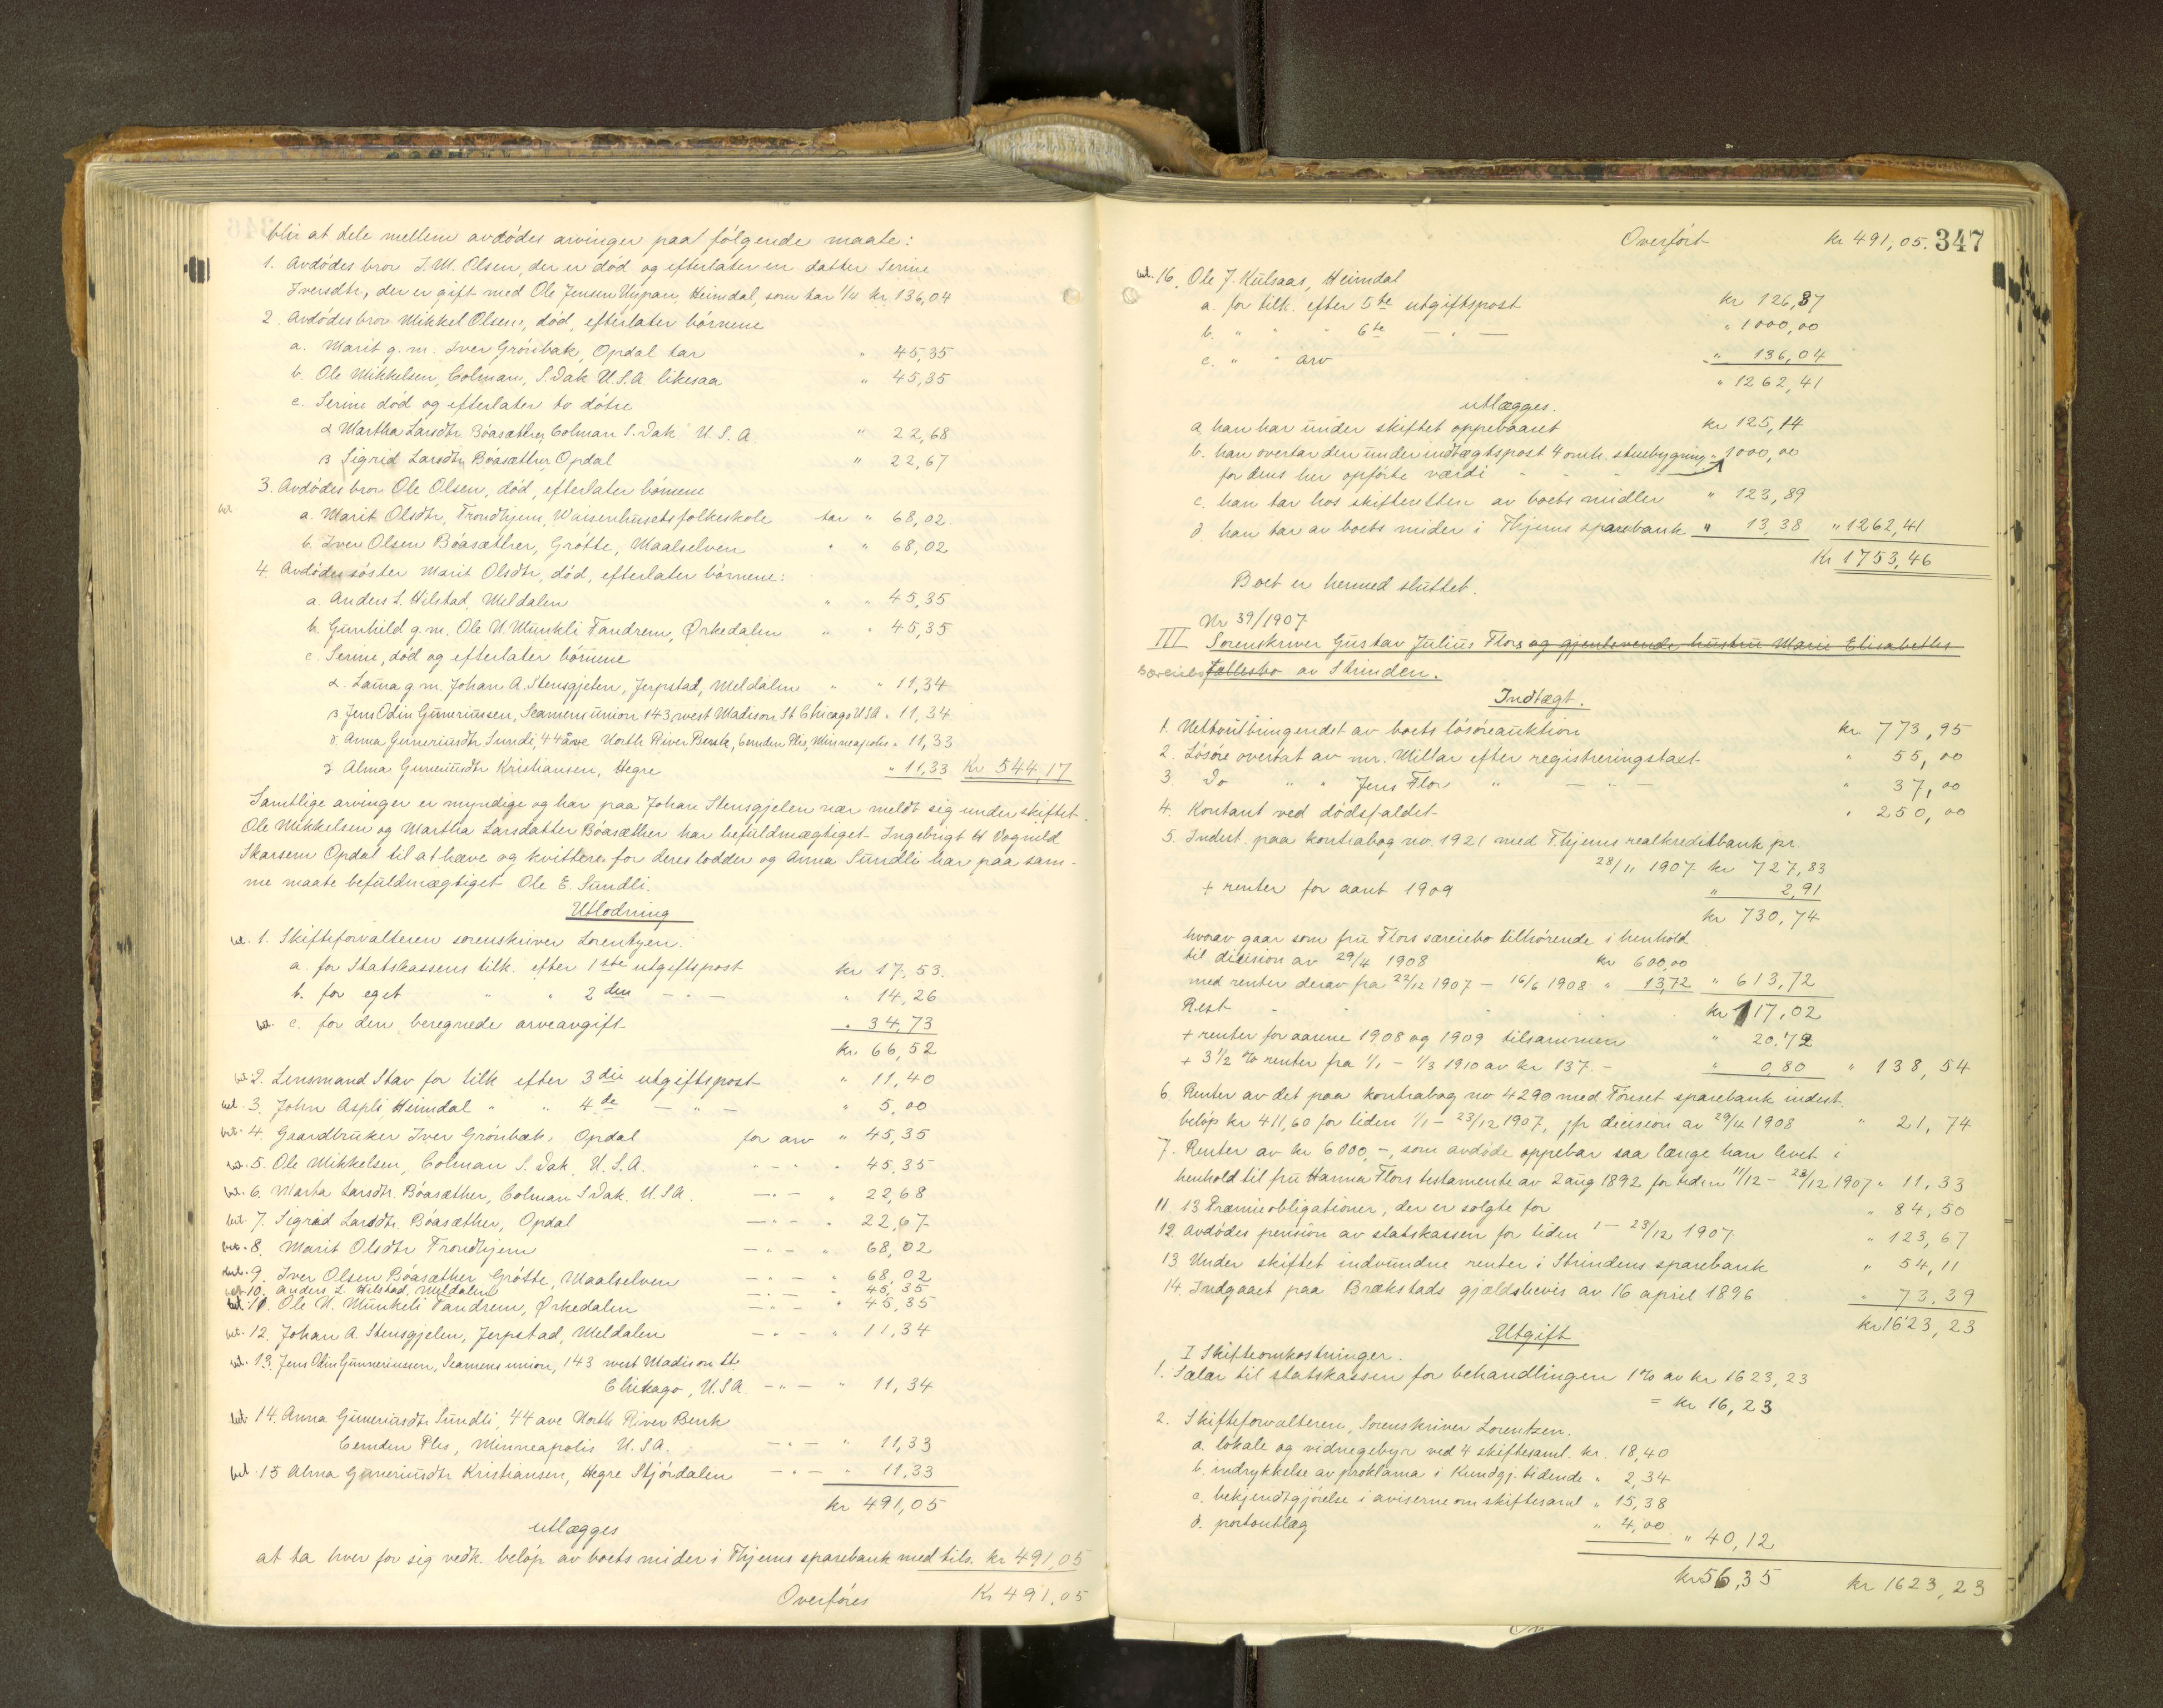 blir at dele mellem avdødes arvinger paa følgende maate:
1. Avdødes bror I. M. Olsen, der er død og efterlater en datter Serine
Iversdtr, der er gift med Ole Jensen Uspan, Heimdal, som tar 1/4 kr. 136,04
2. Avdødes bror Mikkel Olsen, død, efterlater børnene
a. Marit g. m. Iver Grønbak, Opdal tar " 45,35
b. Ole Mikkelsen, Colman, S. Dak U.S.A. likesaa " 45,35
c. Serine død og efterlater to døtre
α Martha Larsdtr Bøasæther, Colman S. Dak U.S.A " 22,68
β Sigrid Larsdtr Bøasæther Opdal " 22,67
3. Avdødes bror Ole Olsen, død, efterlater børnene
a. Marit Olsdtr, Trondhjem, Waisenhusets folkeskole tar " 68,02.
b. Iver Olsen Bøasæther, Grøtte, Maalselven " " 68,02
4. Avdødes søster Marit Olsdtr, død, efterlater børnene:
a. Anders L. Hilstad, Meldalen " " 45,35
b. Gunhild g. m. Ole N. Munkli Fandrem, Ørkedalen " " 45,35
c. Serine, død og efterlater børnene
α. Laura g. m. Johan A. Stensgjelen, Jerpstad, Meldalen " " 11,34
β Jens Odin Gunneriussen, Seamens union 143 west Madison St Chicago USA " 11,34
γ. Anna Guneriusdtr Sundli, 44 ave North River Bank, Cemden Plis, Minneapolis " 11,33
δ Alma Guneriusdtr Kristiansen, Hegre " 11,33 Kr 544,17
Samtlige arvinger er myndige og har paa Johan Stensgjelen nær meldt sig under skiftet.
Ole Mikkelsen og Martha Larsdatter Bøasæther har befuldmægtiget Ingebrigt H Vognild
Skarsem Opdal til at hæve og kvittere for deres lodder og Anna Sundli har paa sam-
me maate befuldmægtiget Ole E. Sundli.
Utlodning
bet. 1. Skifteforvalteren sorenskriver Lorentzen.
a. for Statskassens tilk. efter 1ste utgiftspost kr 17,53.
b. for eget " " 2den - " - " 14,26
bet. c. for den beregnede arveavgift " 34,73
kr. 66,52
bet. 2. Lensmand Stav for tilk efter 3die utgiftspost " 11,40
bet. 3. John Aspli Heimdal " " 4de - " - " 5,00
bet. 4. Gaardbruker Iver Grønbæk, Opdal for arv " 45,35
bet. 5. Ole Mikkelsen, Colman S. Dak. U.S.A. - " - " 45,35
bet. 6. Marta Larsdtr. Bøasæther, Colman S Dak. U.S.A. - " - " 22,68
bet. 7. Sigrid Larsdtr. Bøasæther, Opdal - " - " 22,67
bet. 8. Marit Olsdtr Trondhjem - " - " 68,02
bet. 9. Iver Olsen Bøasæther Grøtte, Maalselven - " - " 68,02
bet. 10. Anders L. Hilstad, Meldalen - " - " 45,35
bet. 11. Ole N. Munkeli Fandrem, Ørkedalen - " - " 45,35
bet. 12. Johan A. Stensgjelen, Jerpstad, Meldalen - " - " 11,34
bet. 13. Jens Odin Gunneriussen, Seamens union, 143 west Madison St.
Chikago, U.S.A. - " - " 11,34
bet. 14. Anna Guneriusdtr Sundli, 44 ave North River Benk
Cemden Plis, Minneapolis U.S.A. - " - " 11,33
bet. 15 Alma Guneriusdtr Kristiansen, Hegre Stjørdalen - " - " 11,33
kr 491,05
utlægges
at ta hver for sig vedk. beløp av boets mider i Thjems sparebank med tils. kr 491,05
Overføres Kr 491,05
Overført kr 491,05. 347
bet. 16. Ole J. Kulsaas, Heimdal
a. for tilk. efter 5te utgiftspost kr 126,37
b. " " " 6te - " - " 1000,00
c. " " arv " 136,04
" 1262,41
utlægges.
a han har under skiftet oppebaaret kr 125,14
b. han overtar den under indtægtspost 4 omh. stuebygning " 1000,00
for dens her opførte værdi
c. han tar hos skifteretten av boets midler " 123,89
d han tar av boets mider i Thjems sparebank " 13,38 " 1262,41
Kr 1753,46
Boet er hermed sluttet.
Nr 39/1907
III Sorenskriver Gustav Julius Flors og gjenlevende hustru Marie Elisabeths
særeiebo fællesbo av Strinden.
Indtægt.
1. Nettoutbringendet av boets løsøreauktion kr. 773,95
2. Løsøre overtat av mr. Millar efter registreringstaxt " 55,00
3. Do " " Jens Flor " - " - " 37,00
4. Kontant ved dødsfaldet " 250,00
5. Indest. paa kontrabog nr. 1921 med Thjems realkreditbank pr.
28/11 1907 kr 727,83
+ renter for aaret 1909 " 2,91
kr 730,74
hvorav gaar som fru Flors særeiebo tilhørende i henhold
til dicision av 29/4 1908 kr 600,00
med renter derav fra 22/12 1907 - 16/6 1908 " 13,72 " 613,72
Rest kr 117,02
+ renter for aarene 1908 og 1909 tilsammen " 20,72
+ 3 1/2 % renter fra 1/1 - 1/3 1910 av kr 137.- " 0,80 " 138,54
6. Renter av det paa kontrabog nr 4290 med Tønset sparebank indest.
beløp kr 411,60 for tiden 1/1 - 23/12 1907, jfr dicision av 29/4 1908 " 21,74
7. Renter av kr 6000,-, som avdøde oppebar saa længe han levet i
henhold til fru Hanna Flors testamente av 2 aug 1892 for tiden 11/12 - 23/12 1907 " 11,33
11. 13 Præmieobligationer, der er solgte for " 84,50
12. Avdødes pension av statskassen for tiden 1 - 23/12 1907. " 123,67
13. Under skiftet indvundne renter i Strindens sparebank " 54,11
14. Indgaaet paa Brækstads gjældsbevis av 16 april 1896 " 73,39
kr 1623,23
Utgift
I Skifteomkostninger.
1. Salær til statskassen for behandlingen 1% av kr 1623,23
= kr 16,23
2. Skifteforvalteren, Sorenskriver Lorentzen.
a. lokale og vidnegebyr ved 4 skiftesaml. kr. 18,40
b. indrykkelse av proklama i Kundgj. tidende " 2,34
c. bekjendtgjørelse i aviserne om skiftesaml " 15,38
d. portoutlæg " 4,00 " 40,12
kr 56,35 kr 1623,23